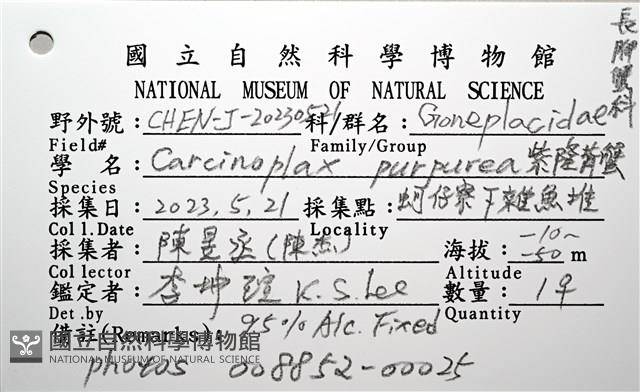 長腳蟹科
國立自然科學博物館
NATIONAL MUSEUM OF NATURAL SCIENCE
野外號：CHEN-J-20230521 科/群名：Goneplacidae
Field# Family/Group
學 名：Carcinoplax purpurea 紫隆背蟹
Species
採集日：2023,5,21 採集點：蚵仔寮下雜魚堆
Coll.Date Locality
採集者：陳昱丞(陳杰) 海拔：-10~-50 m
Collector Altitude
鑑定者：李坤瑄 K.S.Lee 數量：1♀
Det.by Quantity
備註(Remarks)：95% Alc. Fixed
國立自然科學博物館
NATIONAL MUSEUM OF NATURAL SCIENCE
photos 008852-00025